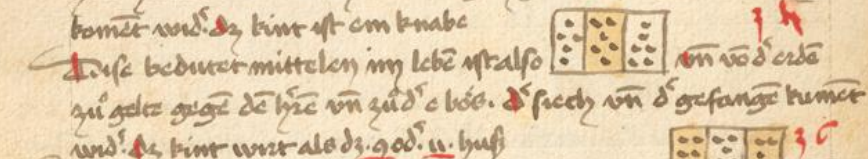 komēt wid᷑. dz kint ist ein knabe
Dise bedutet mittelen im lebē ist also vn̄ vō d᷑ erdē
zuͦ gelte gegē dē h᷑rē vn̄ zuͦ d᷑ e bös. d᷑ siech vn̄ d᷑ gefangē kument
wid᷑. dz kint wirt als dz. 9 od᷑. 11. huß
36